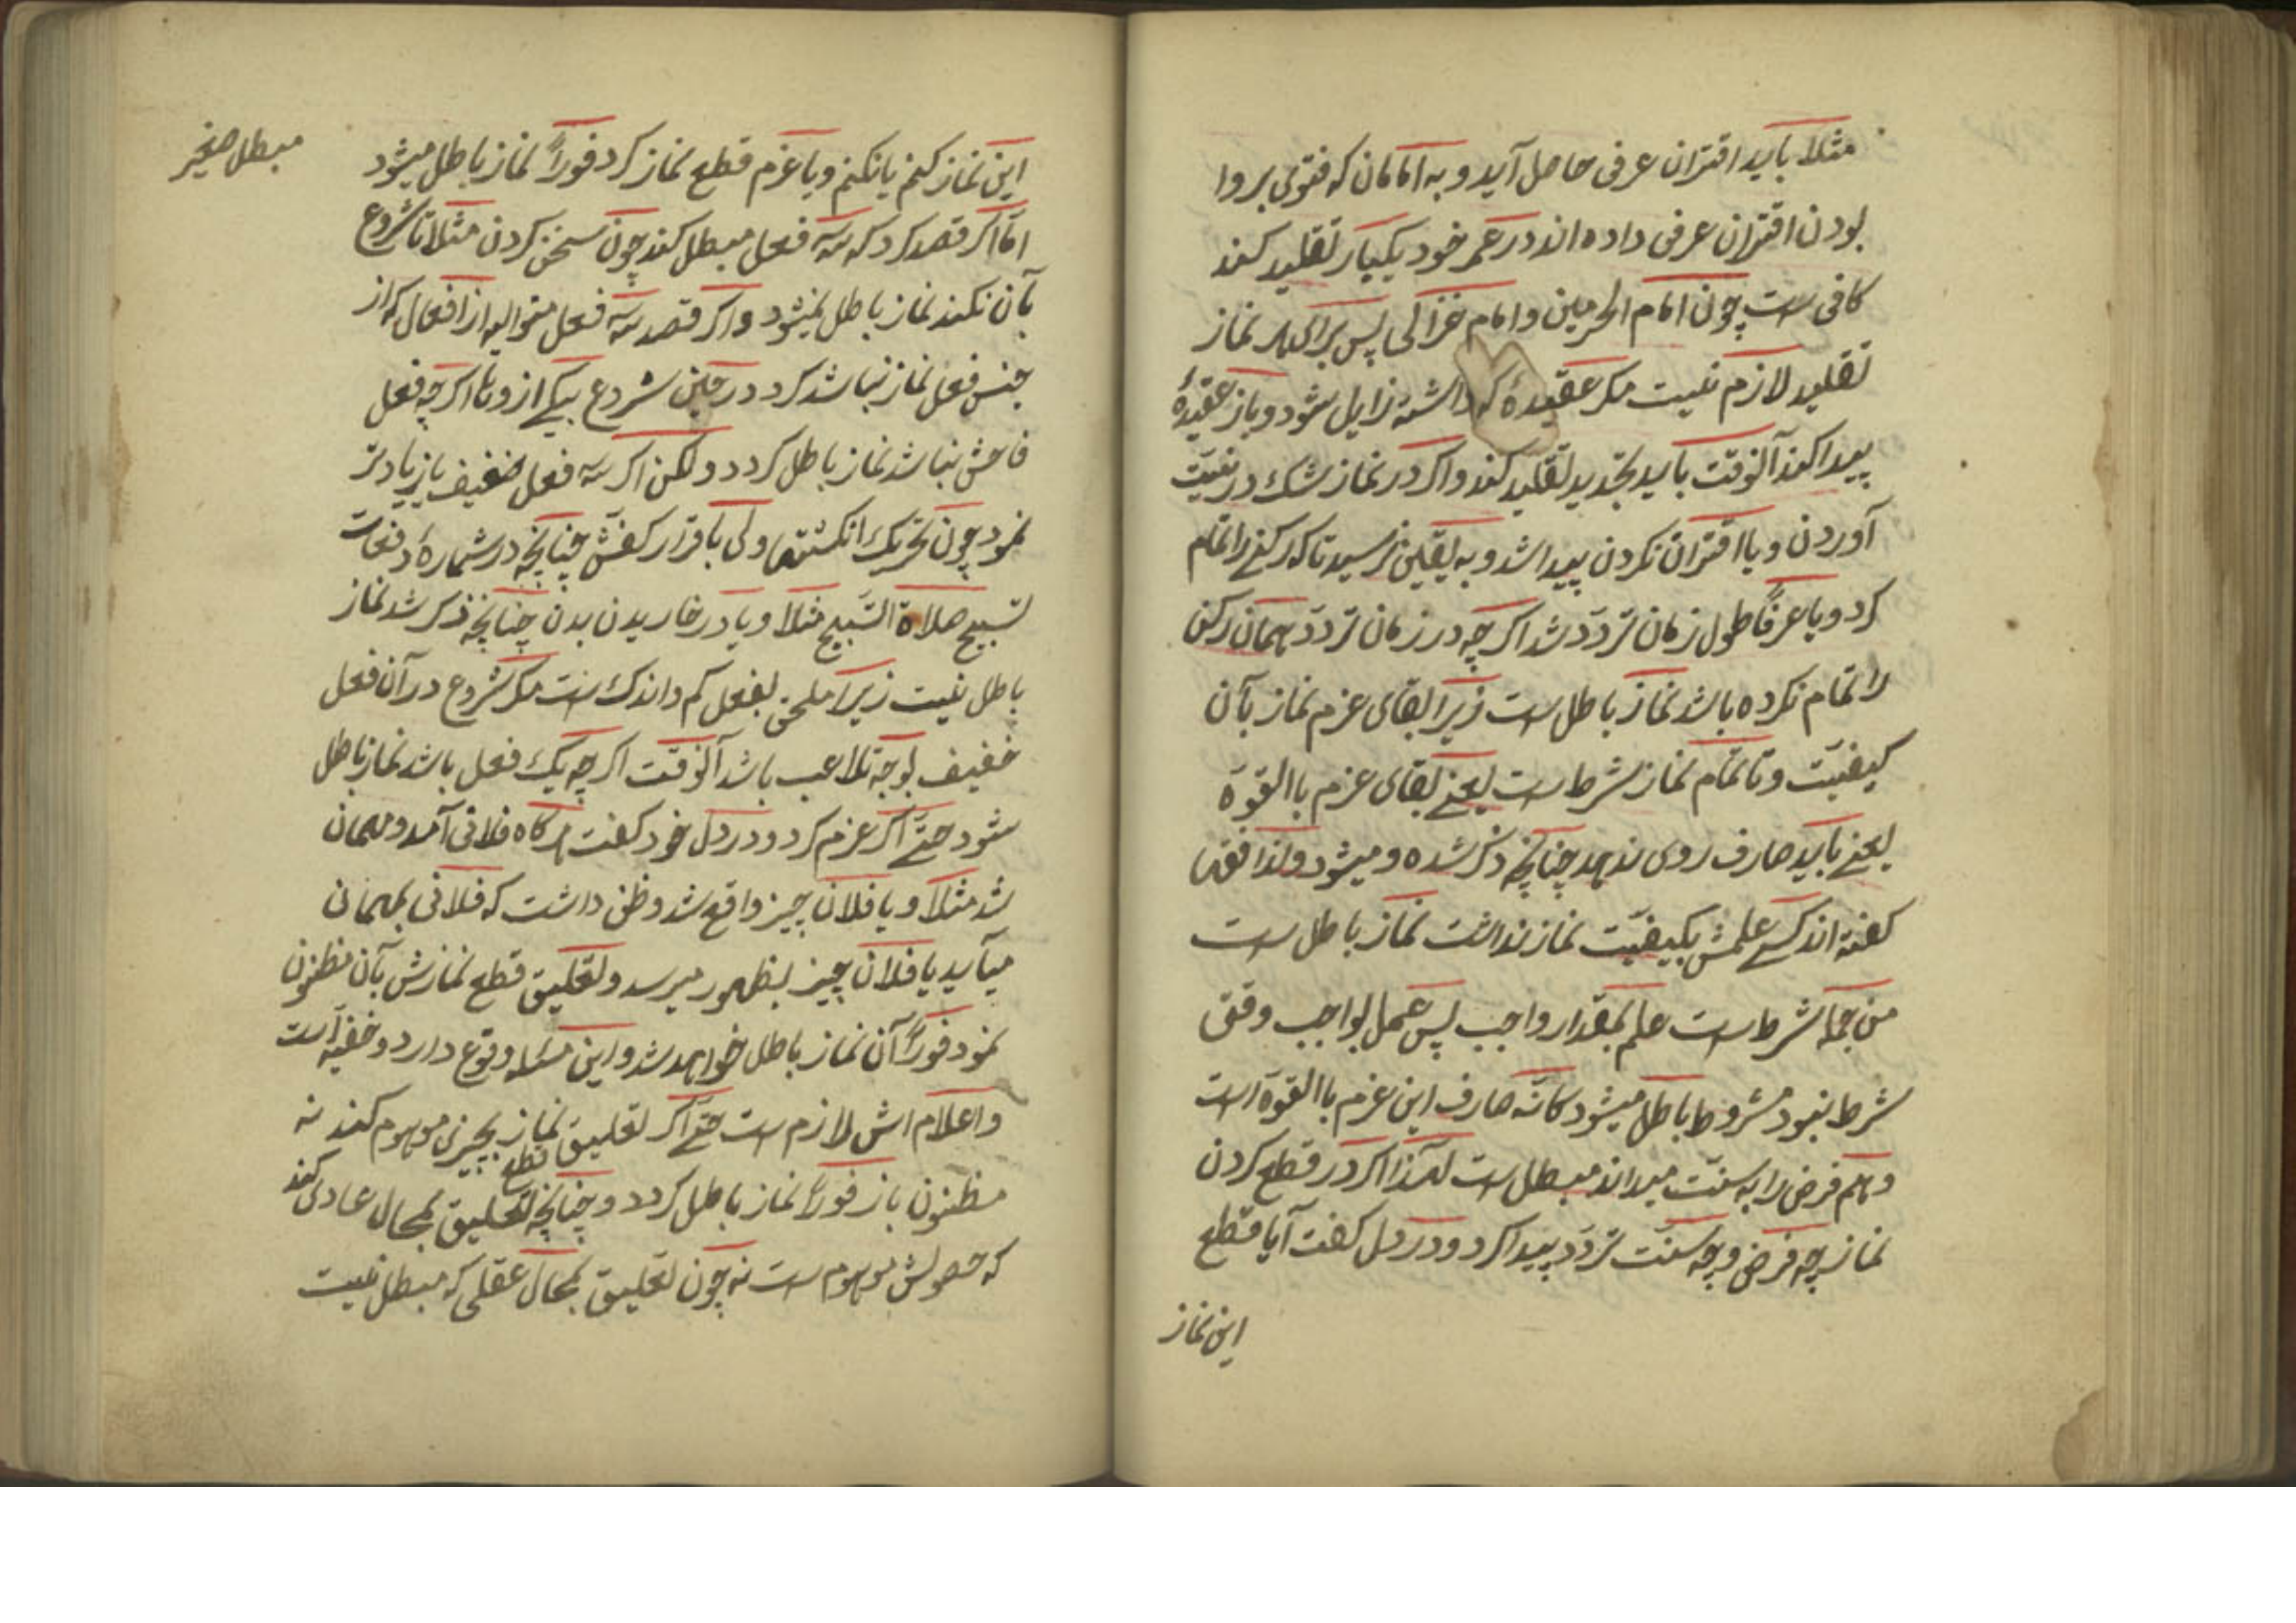 مثلا باید اقتران عرفی حاصل آید و به امامان که فتوی بروا
بودن اقتران عرفی داده اند در عمر خود یکبار تقلید کند
کافی ست چون امام الحرمین و امام غزالی پس برای هر نماز
تقلید لازم نیست مکر عقیدهٔ که داشته زایل شود و باز عقیدهٔ
پیدا کند آنوقت باید تجدید تقلید کند و اکر در نماز شک در نیّت
آوردن و یا اقتران نکردن پیدا شد و به یقین نرسید تا که رکنے را تمام
کرد و یا عرفاً طول زمان تردّد شد اکرچه در زمان تردّد همان رکن
را تمام نکرده باشد نماز باطل ست زیرا بقای عزم نماز بآن
کیفیّت و تا تمام نماز شرط ست یعنے بقای عزم باالقوّة
یعنے باید صارف روی ندهد چنانچه ذکر شده و میشود ولذا فقها
کفته اند کسے علمش بکیفیّت نماز نداشت نماز باطل ست
من جمله شرط ست علم بمقدار واجب پس عمل بواجب وقتی
شرط نبود مشروط باطل میشود کانّه صارف این عزم باالقوّة است
و هم فرض را به سنّت میداند مبطل ست لهذا اکر در قطع کردن
نماز چه فرض و چه سنّت تردّد پیدا کرد و در دل کفت آیا قطع
این نماز
مبطل صغیر
این نماز کنم یا نکنم و یا عزم قطع نماز کرد فوراً نماز باطل میشود
امّا اکر قصد کرد که سه فعل مبطل کند چون سخن کردن مثلا تا شروع
بآن نکند نماز باطل نمیشود و اکر قصد سه فعل متوالیه از افعال که از
جنس فعل نماز نباشد کرد در حین شروع بیکے از وها اکرچه فعل
فاحش نباشد نماز باطل کردد ولکن اکر سه فعل خفیف یا زیادتر
نمود چون تحریک انکشتها ولی با قرار کفّش چنانچه در شمارهٔ دفعات
تسبیح صلاة التسبیح مثلا و یا در خاریدن بدن چنانچه ذکر شد نماز
باطل نیست زیرا ملحق بفعل کم و اندک ست مکر شروع در آن فعل
خفیف بوجه تلاعب باشد آنوقت اکرچه یک فعل باشد نماز باطل
شود حتّے اکر عزم کرد و در دل خود کفت هرکاه فلانی آمد و مهمان
شد مثلا و یا فلان چیز واقع شد و ظن داشت که فلانی بمهمانی
میآید یا فلان چیز بظهور میرسد و تعلیق قطع نمازش بآن مظنون
نمود فوراً آن نماز باطل خواهد شد و این مسئله وقوع دارد و خفیه است
و اعلام اش لازم ست حتّے اکر تعلیق نماز بچیزی موهوم کند نه
مظنون باز فوراً نماز باطل کردد و چنانچه تعلیق قطع بمحال عادی کند
که حصولش موهوم ست نه چون تعلیق بمحال عقلی که مبطل نیست